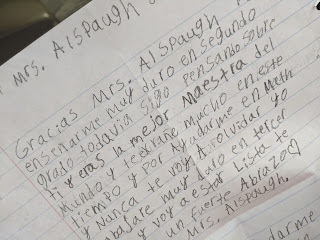 Mrs. Alspaugh
Gracias Mrs. Alspaugh
enseñarme muy duro en segundo
grado todavia sigo pensando sobre
ti y eras la mejor Maestra del
Mundo y te extrañe mucho en este
tiempo y por Ayudarme en Math
y Nunca te voy A olvidar yo
abajare muy duro en tercer
y voy a estar Lista te
un fuerte Abrazo♡
Mrs. Alspaugh.
darme